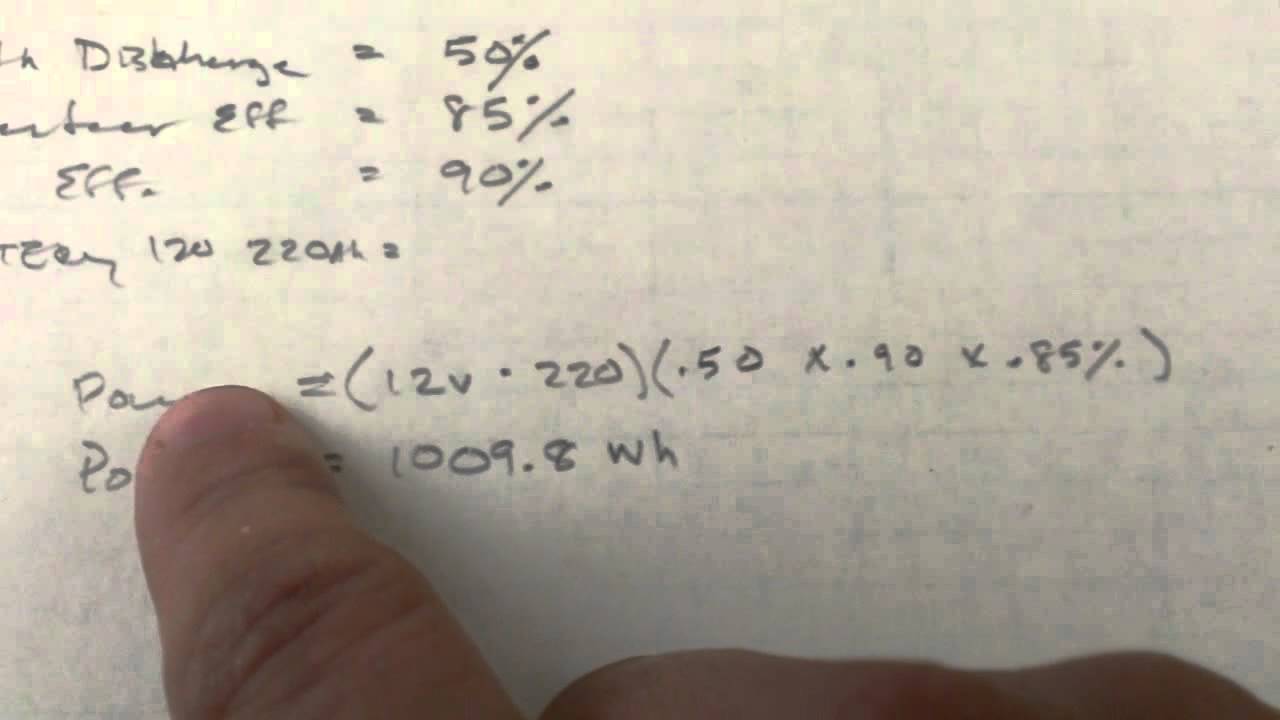 th Discharge = 50%
erter Eff = 85%
Eff. = 90%
TTERY 12V 220Ah =
Pow = (12v · 220)(.50 x .90 x .85%)
Po = 1009.8 Wh